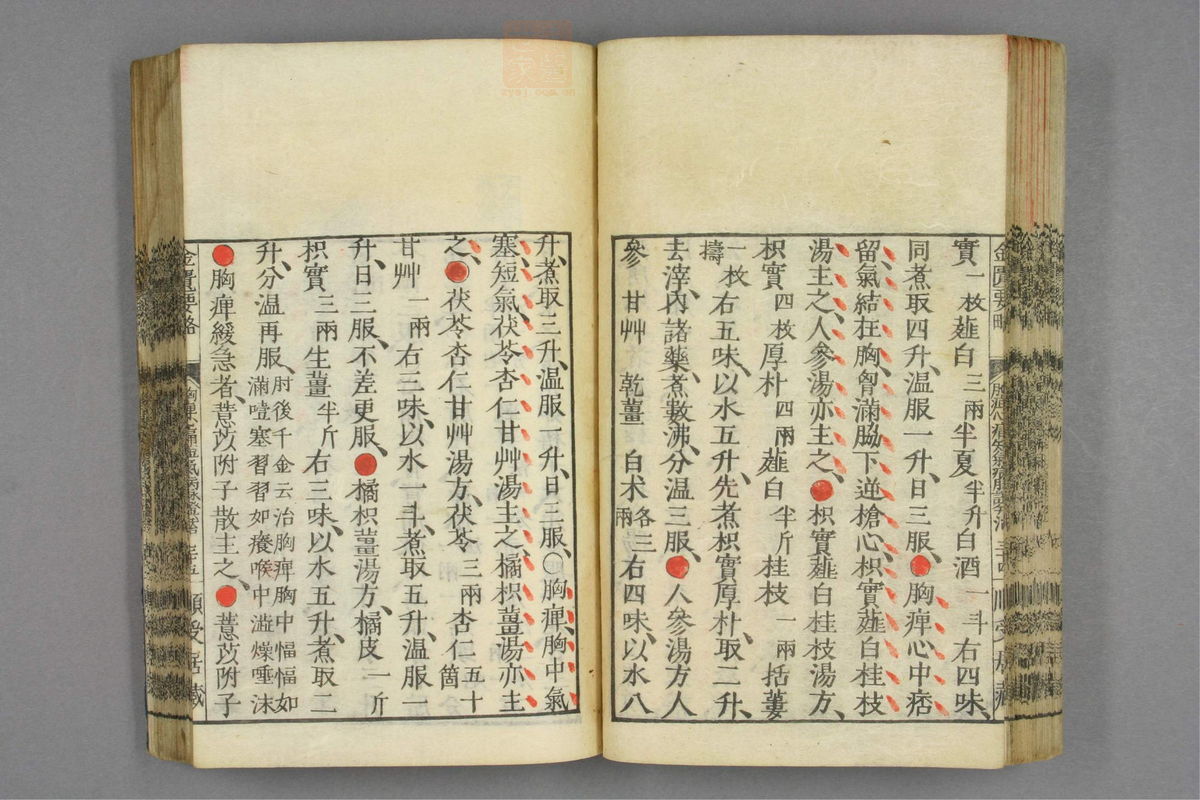 實一枚薤白三兩半夏半升白酒一斗右四味、
同煮取四升、温服一升、日三服、●胸痺心中痞
留氣結在胸、胷滿脇下逆槍心、枳實薤白桂枝
湯主之、人參湯亦主之、●枳實薤白桂枝湯方、
枳實四枚厚朴四兩薤白半斤桂枝一兩括蔞
一枚擣右五味、以水五升、先煮枳實厚朴、取二升、
去滓、內諸藥、煮數沸、分温三服、●人參湯方人
參 甘艸 乾薑 白术各三兩右四味、以水八
升、煮取三升、温服一升、日三服、○胸痺、胸中氣
塞、短氣、茯苓杏仁甘艸湯主之、橘枳薑湯亦主
之、●茯苓杏仁甘艸湯方、茯苓三兩杏仁五十箇
甘艸一兩右三味、以水一斗、煮取五升、温服一
升、日三服、不差更服、●橘枳薑湯方、橘皮一斤
枳實三兩生薑半斤右三味、以水五升、煮取二
升、分温再服、肘後千金云治胸痺胸中愊愊如滿噎塞習習如癢喉中澁燥唾沫
●胸痺緩急者、薏苡附子散主之、●薏苡附子
金匱要略